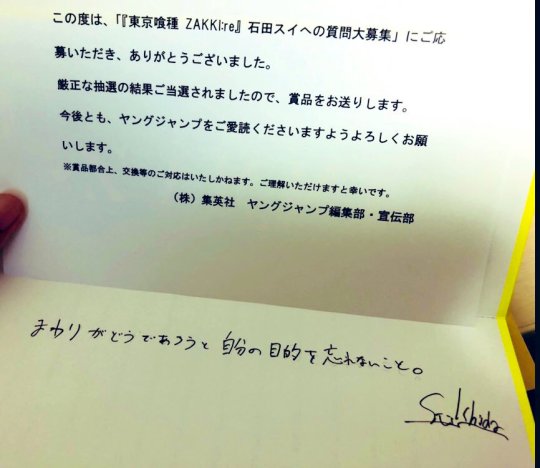 この度は、「『東京喰種 ZAKKI:re』石田スイへの質問大募集」にご応
募いただき、ありがとうございました。
厳正な抽選の結果ご当選されましたので、賞品をお送りします。
今後とも、ヤングジャンプをご愛読くださいますようよろしくお願
いします。
※賞品都合上、交換等のご対応はいたしかねます。ご理解いただけますと幸いです。
（株）集英社　ヤングジャンプ編集部・宣伝部
まわりがどうであろうと自分の目的を忘れないこと。
Sui Ishida